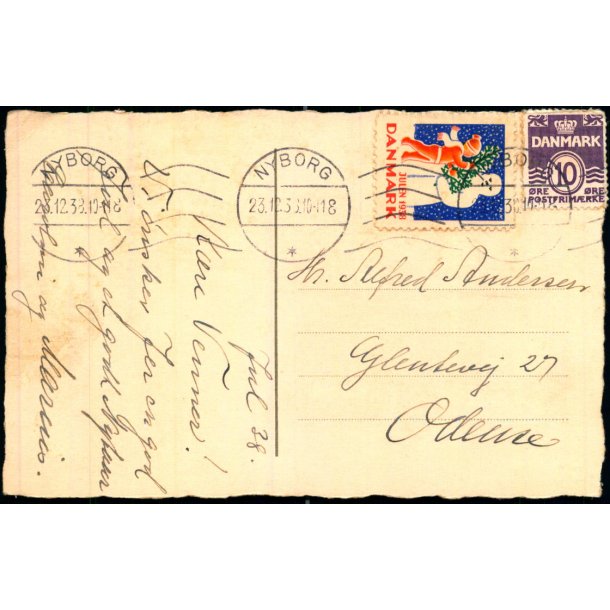 NYBORG
23.12.38.10-11 8
NYBORG
23.12.38.10-11 8
DANMARK
JULEN 1938
DANMARK
10
ØRE ØRE
POSTFRIMÆRKE
Jul 38.
Kære Venner!
Vi ønsker Jer en god
Jul og et godt Nytaar
og Marius.
Hr. Alfred Andersen
Glentevej 27
Odense